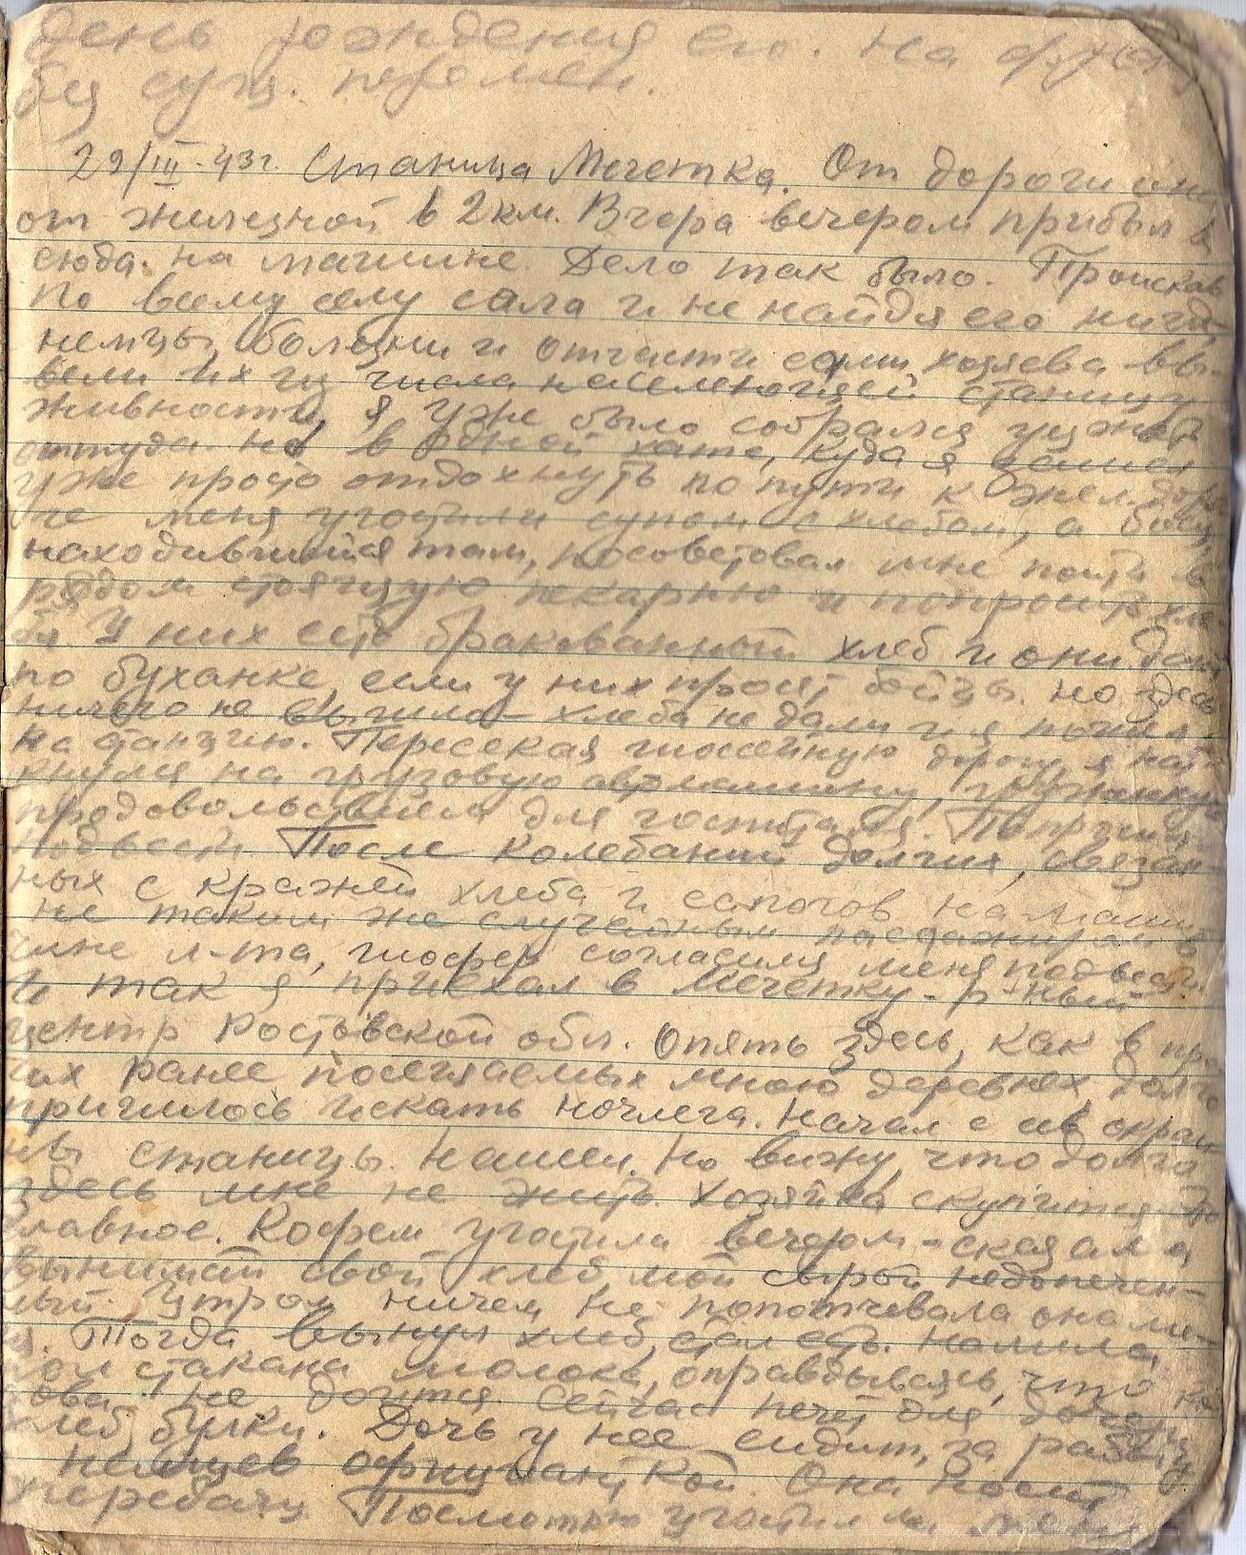 день рождения его. На фуже
бы сущ. перемен.
29/III-43г. Станица Мечетка. От дороги ж
от железной в 2 км. Вчера вечером прибыл я
сюда. на машине. Дело так было. Проискав
по всему селу сала и не найдя его нигд
немцы, болезни и отчасти сами хозяева вы-
вели их из числа населяющей станицу
живности, я уже было собрался уезжать
оттуда но в одной хате, куда я зашел
уже просто отдохнуть по пути к жел. доро
ге меня угостили супом с хлебом, а боец,
находившийся там, посоветовал мне пойти в
рядом стоящую пекарню и попросить хле
ба У них есть бракованный хлеб и они дают
по буханке, если у них просят бойцы. но здесь
ничего не вышло - хлеба не дали и я пошел
на станцию. Пересекая шоссейную дорогу я нат
кнулся на грузовую автомашину, груженную
продовольствием для госпиталя. Попросил
подвезти. После колебаний долгих, связан
ных с кражей хлеба и сапогов на маши
не таким же случайным пассажиром в
чине л-та, шофер согласился меня подвезти.
И так я приехал в Мечетку - р-ный
центр Ростовской обл. Опять здесь, как в про
гих ранее посещаемых мною деревнях, долго
пришлось искать ночлега. Начал с окраи
ны станицы. Нашел. Но вижу, что долго
здесь мне не жить. Хозяйка скупится
главное. Кофем угостила вечером - сказала
вынимай свой хлеб, мой сырой недопечен-
ный. Утром ничем не попотчевала она ме-
ня. Тогда вынул хлеб, стал есть. Налила
пол стакана молока, оправдываясь, что ко
рова не доится. Сейчас печет для дочери
хлеб, булки. Дочь у нее сидит, за работу
у немцев официанткой. Она носит
передачу. Посмотрю угостила ли меня